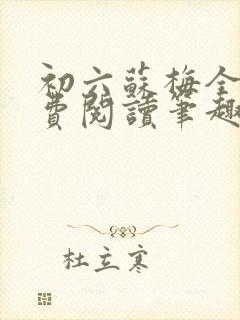 初六蘇梅全
費閱讀筆趣
杜立寒